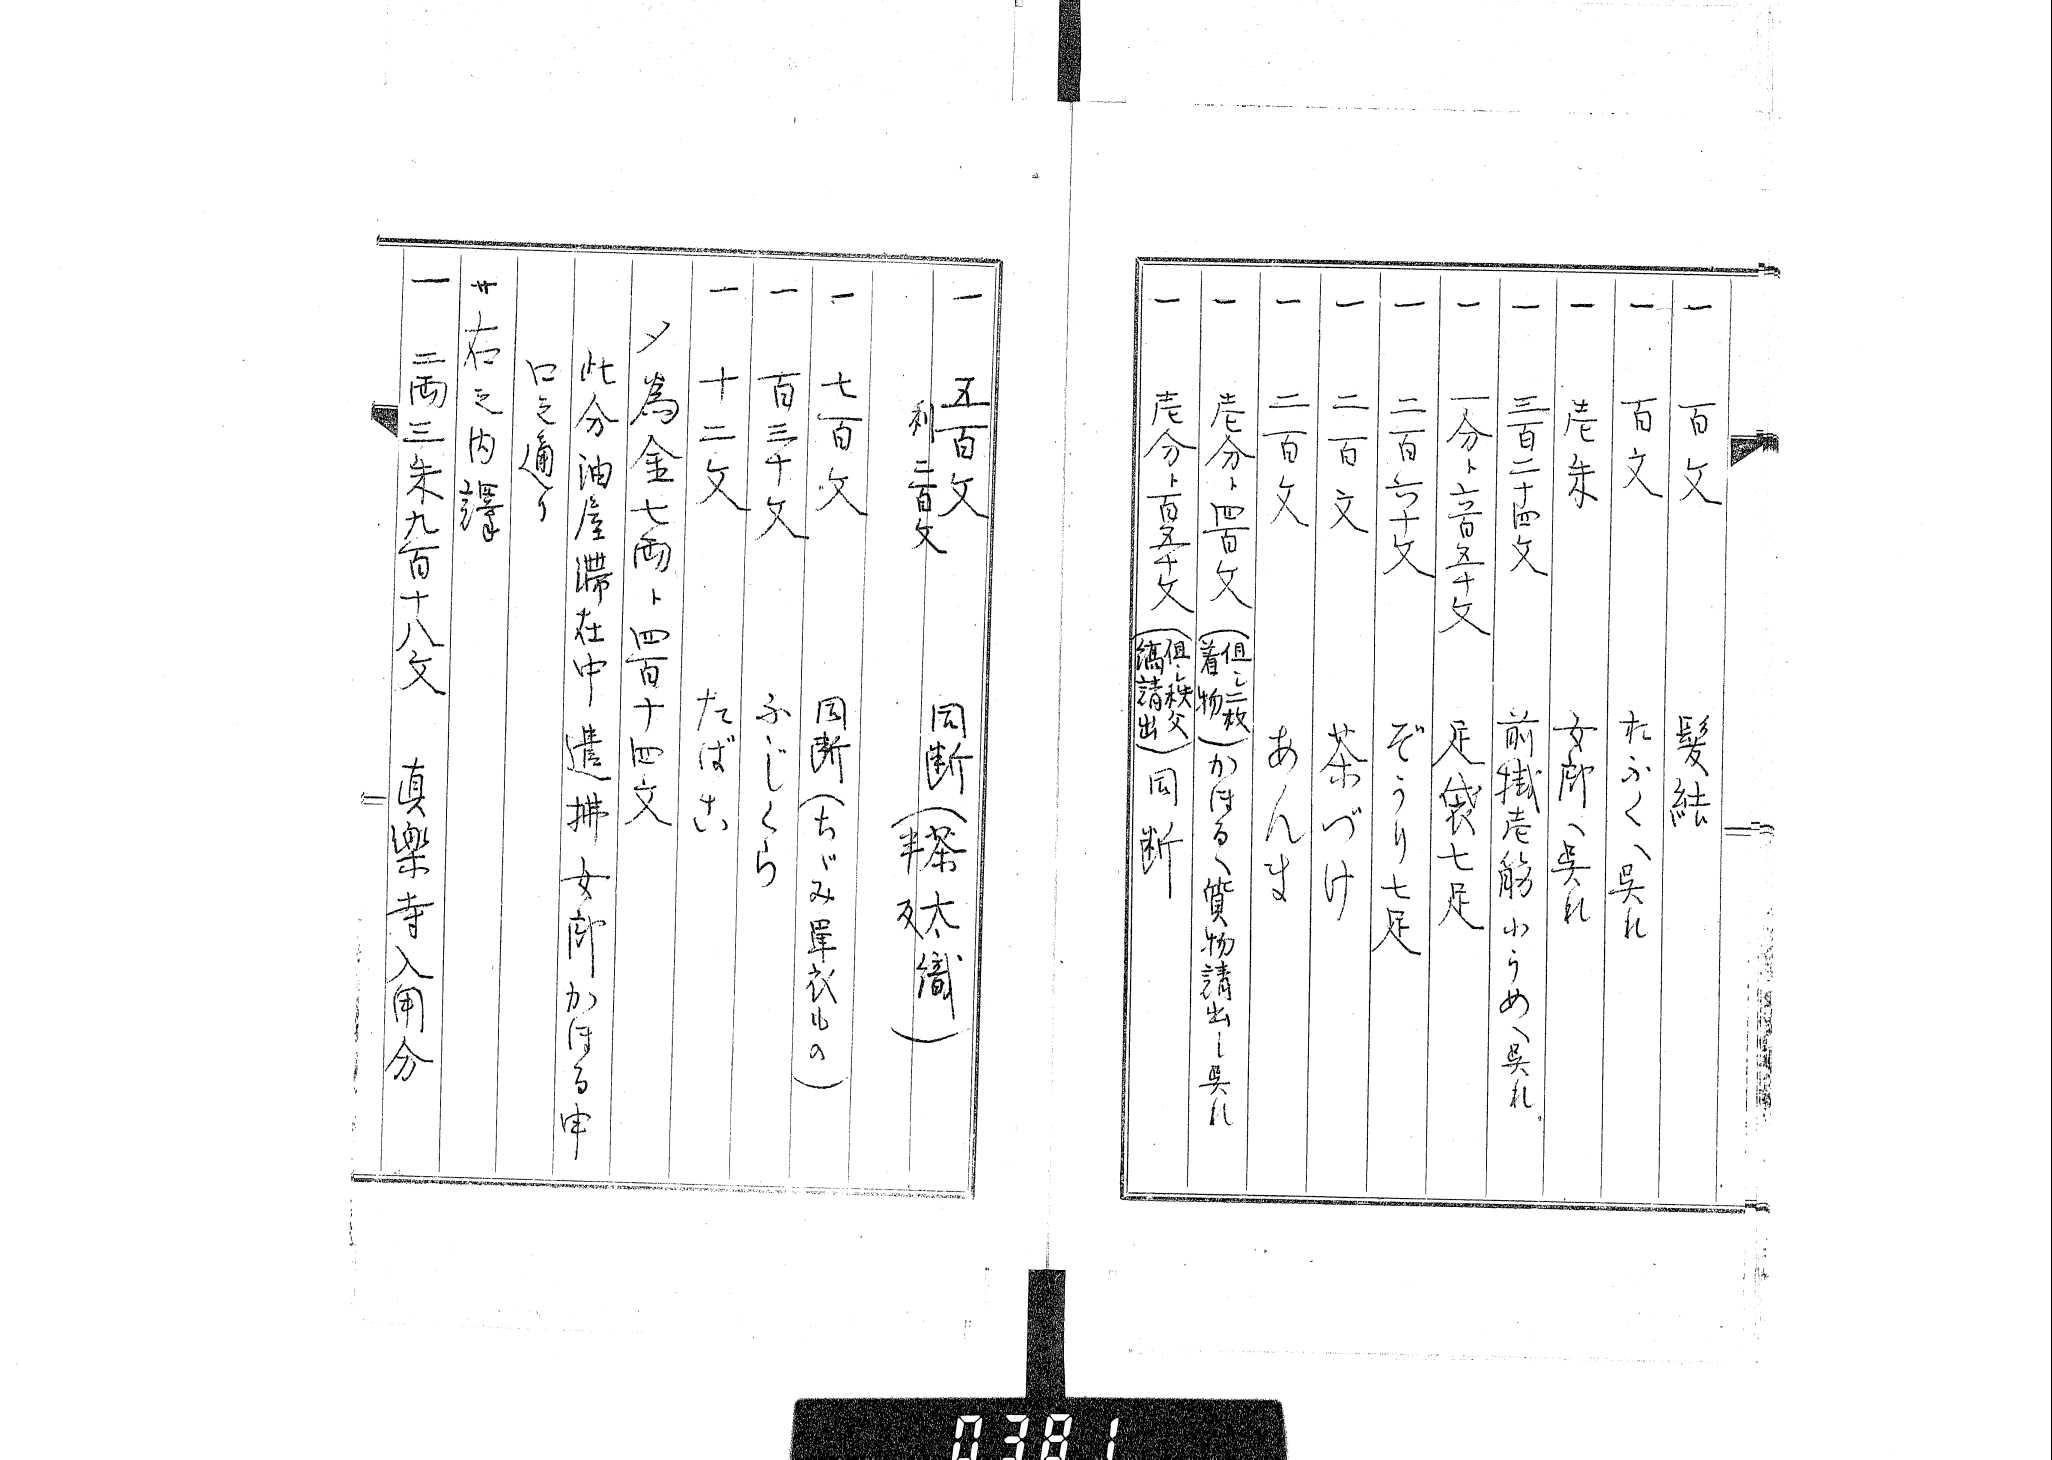 一 百文 髪結
一 百文 おふくへ呉れ
一 壱朱 女郎へ呉れ
一 三百二十四文 前掛壱筋小うめへ呉れ
一 一分ト六百五十文 足袋七足
一 二百六十文 ぞうり七足
一 二百文 茶づけ
一 二百文 あんま
一 壱分ト四百文(但し二枚着物)かほるへ質物請出し呉れ
一 壱分ト百五十文(但し秩父縞請出)同断
一 五百文 同断(茶太織半反)
利二百文
一 七百文 同断(ちぢみ単衣もの)
一 百三十文 ふじくら
一 十二文 たばこ
〆為金七両ト四百十四文
此分油屋滞在中遣拂女郎かほる申
口之通り
廿右之内譯
一 二両三朱九百十八文 真樂寺入用分
0381